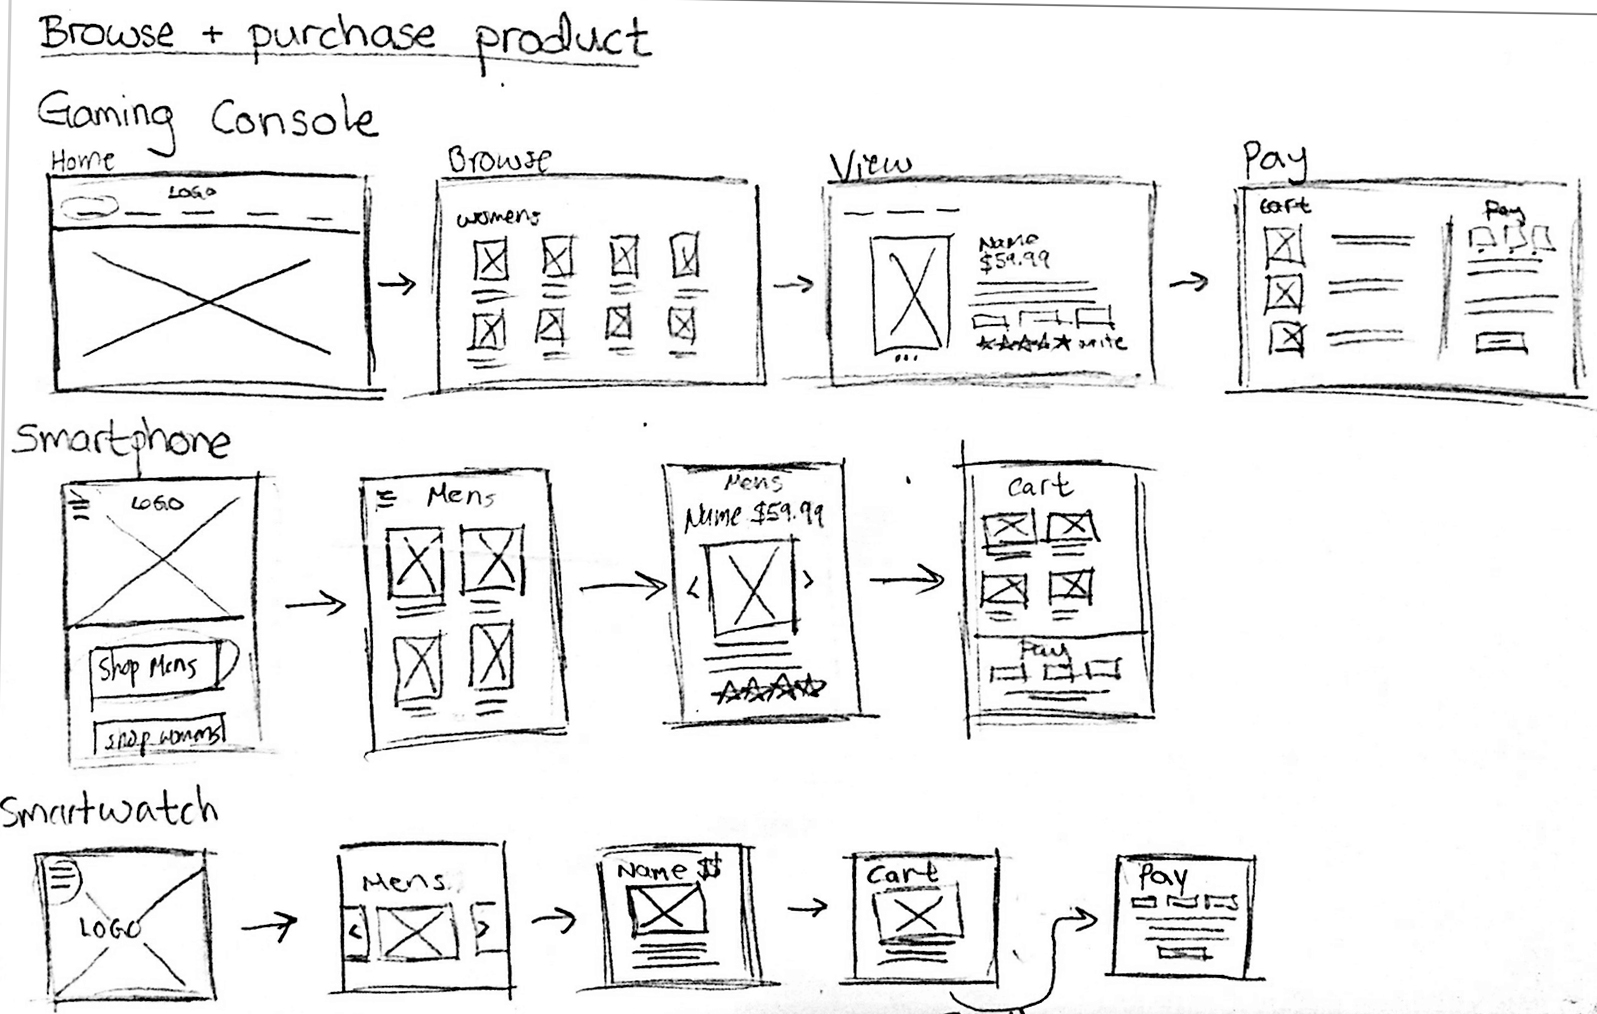 Browse + purchase product
Gaming Console
Home
LOGO
Browse
womens
View
Name
$59.99
write
Pay
Cart
Pay
Smartphone
LOGO
Shop Mens
Shop womens
Mens
Mens
Name $59.99
Cart
Pay
Smartwatch
LOGO
Mens
Name $$
Cart
Pay